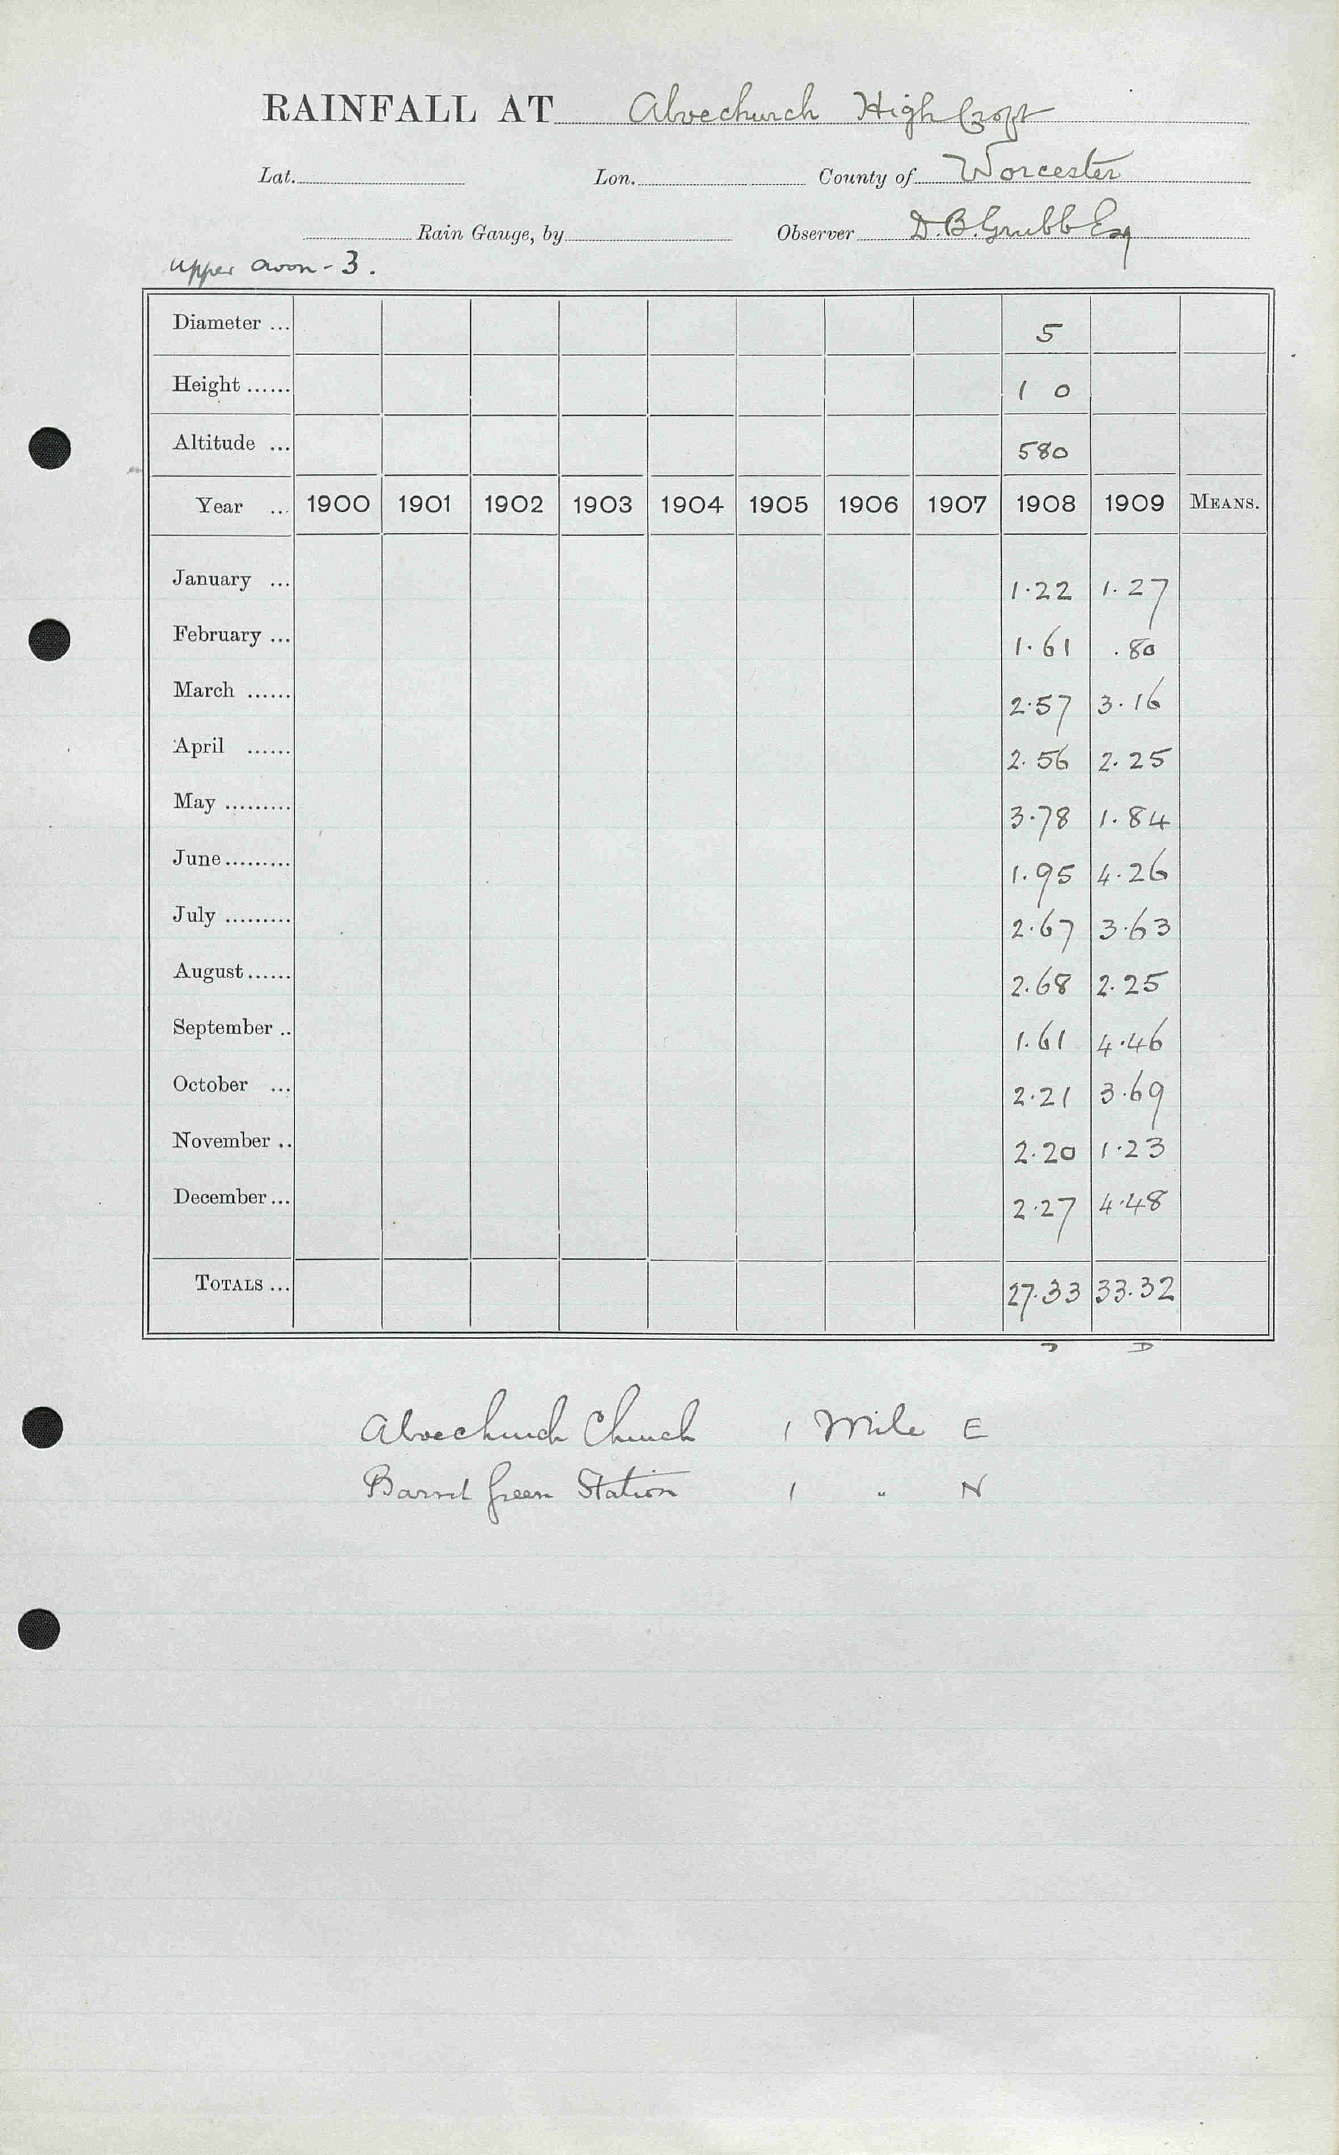 RAINFALL AT Alvechurch High Croft
Lat. Lon. County of Worcester
Rain Gauge, by Observer D.B. Grubb Esq
Upper Avon - 3.
Diameter ... 5
Height ...... 1 0
Altitude ... 580
Year ... 1900 1901 1902 1903 1904 1905 1906 1907 1908 1909 MEANS.
January ... 1.22 1.27
February ... 1.61 .80
March ...... 2.57 3.16
April ...... 2.56 2.25
May ......... 3.78 1.84
June......... 1.95 4.26
July ......... 2.67 3.63
August...... 2.68 2.25
September .. 1.61 4.46
October ... 2.21 3.69
November .. 2.20 1.23
December... 2.27 4.48
TOTALS ... 27.33 33.32
Alvechurch Church 1 Mile E
Barnt Green Station 1 " N